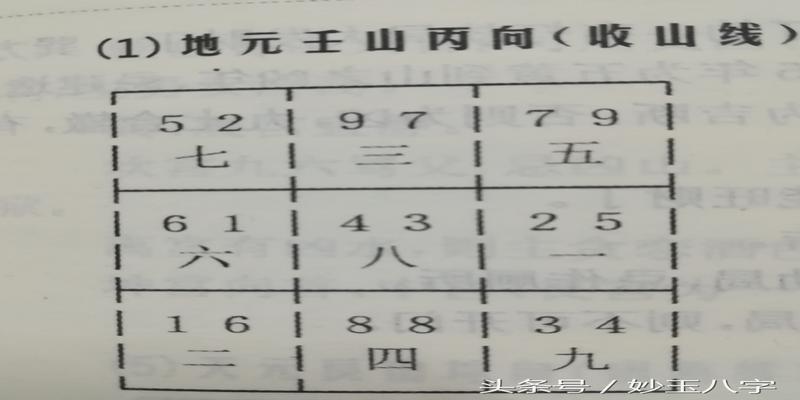 (1)地元壬山丙向(收山线)
5 2 9 7 7 9
七 三 五
6 1 4 3 2 5
六 八 一
1 6 8 8 3 4
二 四 九
头条号 / 妙玉八字